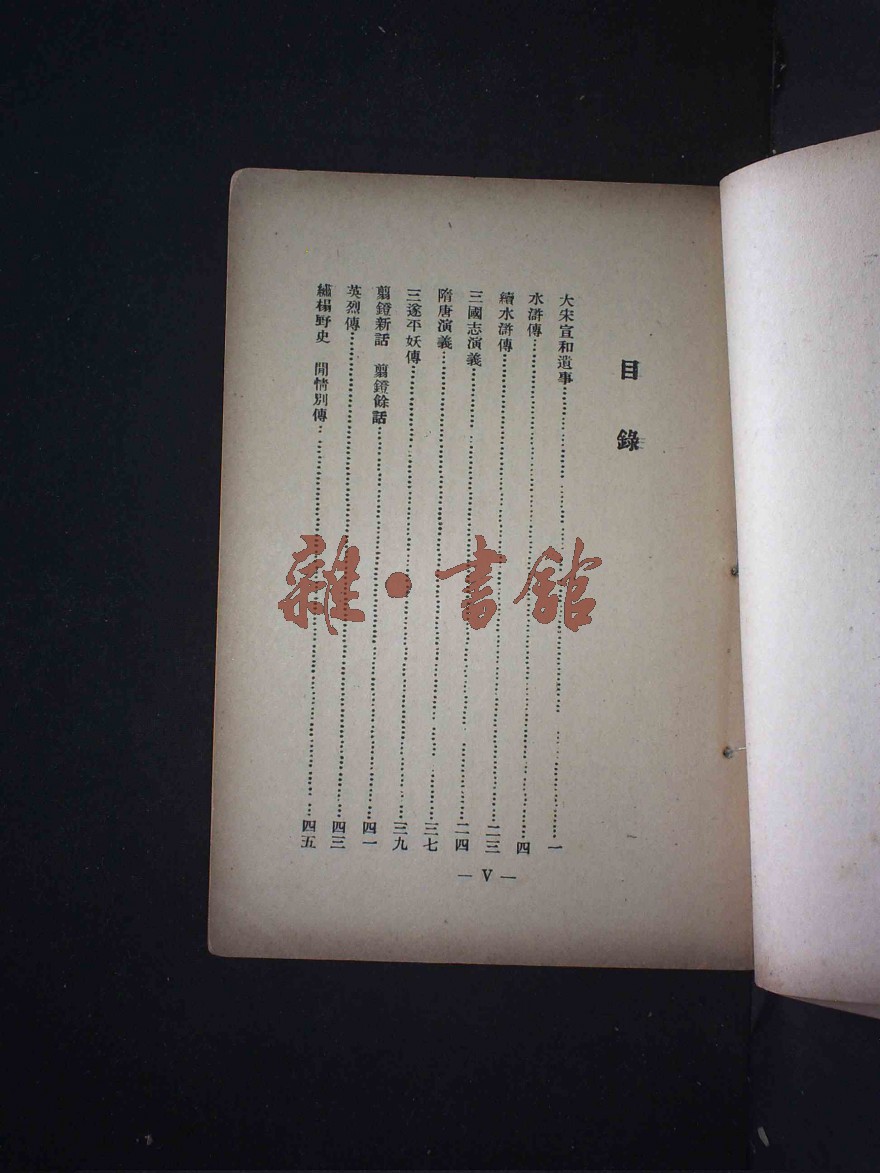 目錄
大宋宣和遺事……一
水滸傳……四
續水滸傳……二三
三國志演義……二四
隋唐演義……三七
三遂平妖傳……三九
翦鐙新話　翦鐙餘話……四一
英烈傳……四三
繡榻野史　閒情別傳……四五
— V —
雜·書館